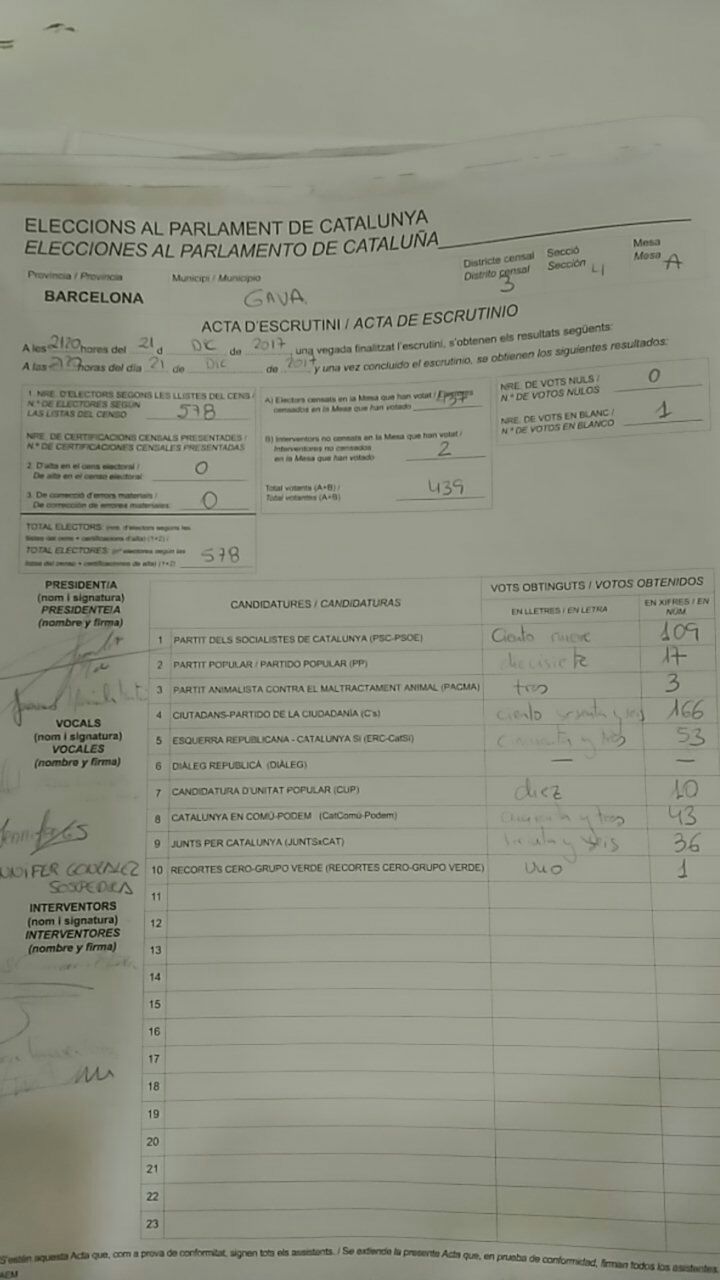 ELECCIONS AL PARLAMENT DE CATALUNYA
ELECCIONES AL PARLAMENTO DE CATALUÑA
Provincia / Provincia Municipi / Municipio Districte censal Distrito censal 3 Secció Sección 4 Mesa Mesa A
BARCELONA GAVA
ACTA D'ESCRUTINI / ACTA DE ESCRUTINIO
A les 2120 hores del 21 d DIC de 2017 una vegada finalitzat l'escrutini, s'obtenen els resultats següents:
A las 2120 horas del día 21 de DIC de 2017 y una vez concluido el escrutinio, se obtienen los siguientes resultados:
1. NRE. D'ELECTORS SEGONS LES LLISTES DEL CENS /
N.º DE ELECTORES SEGÚN
LAS LISTAS DEL CENSO 578
NRE. DE CERTIFICACIONS CENSALS PRESENTADES /
N.º DE CERTIFICACIONES CENSALES PRESENTADAS
2. D'alta en el cens electoral /
De alta en el censo electoral: 0
3. De correcció d'errors materials /
De corrección de errores materiales: 0
TOTAL ELECTORS: (nre. d'electors segons les
llistes del cens + certificacions d'alta) (1+2) /
TOTAL ELECTORES: (nº electores según las
listas del censo + certificaciones de alta) (1+2) 578
A) Electors censats en la Mesa que han votat / Electores
censados en la Mesa que han votado 437
B) Interventors no censats en la Mesa que han votat /
Interventores no censados
en la Mesa que han votado 2
Total votants (A+B) /
Total votantes (A+B) 439
NRE. DE VOTS NULS /
N.º DE VOTOS NULOS 0
NRE. DE VOTS EN BLANC /
N.º DE VOTOS EN BLANCO 1
PRESIDENT/A
(nom i signatura)
PRESIDENTE/A
(nombre y firma)
VOCALS
(nom i signatura)
VOCALES
(nombre y firma)
JENNIFER GONZALEZ
SOSPEDRA
INTERVENTORS
(nom i signatura)
INTERVENTORES
(nombre y firma)
CANDIDATURES / CANDIDATURAS VOTS OBTINGUTS / VOTOS OBTENIDOS
EN LLETRES / EN LETRA EN XIFRES / EN NÚM.
1 PARTIT DELS SOCIALISTES DE CATALUNYA (PSC-PSOE) Ciento nueve 109
2 PARTIT POPULAR / PARTIDO POPULAR (PP) diecisiete 17
3 PARTIT ANIMALISTA CONTRA EL MALTRACTAMENT ANIMAL (PACMA) tres 3
4 CIUTADANS-PARTIDO DE LA CIUDADANÍA (C's) ciento sesenta y seis 166
5 ESQUERRA REPUBLICANA - CATALUNYA SÍ (ERC-CatSí) cincuenta y tres 53
6 DIÀLEG REPUBLICÀ (DIÀLEG) — —
7 CANDIDATURA D'UNITAT POPULAR (CUP) diez 10
8 CATALUNYA EN COMÚ-PODEM (CatComú-Podem) cuarenta y tres 43
9 JUNTS PER CATALUNYA (JUNTSxCAT) treinta y seis 36
10 RECORTES CERO-GRUPO VERDE (RECORTES CERO-GRUPO VERDE) uno 1
11
12
13
14
15
16
17
18
19
20
21
22
23
S'estén aquesta Acta que, com a prova de conformitat, signen tots els assistents. / Se extiende la presente Acta que, en prueba de conformidad, firman todos los asistentes.